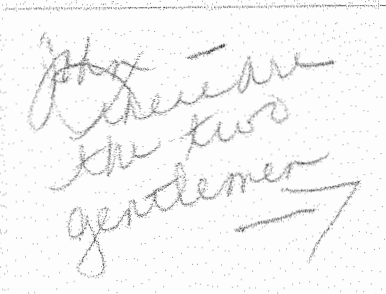 John –
there are
the two
gentlemen